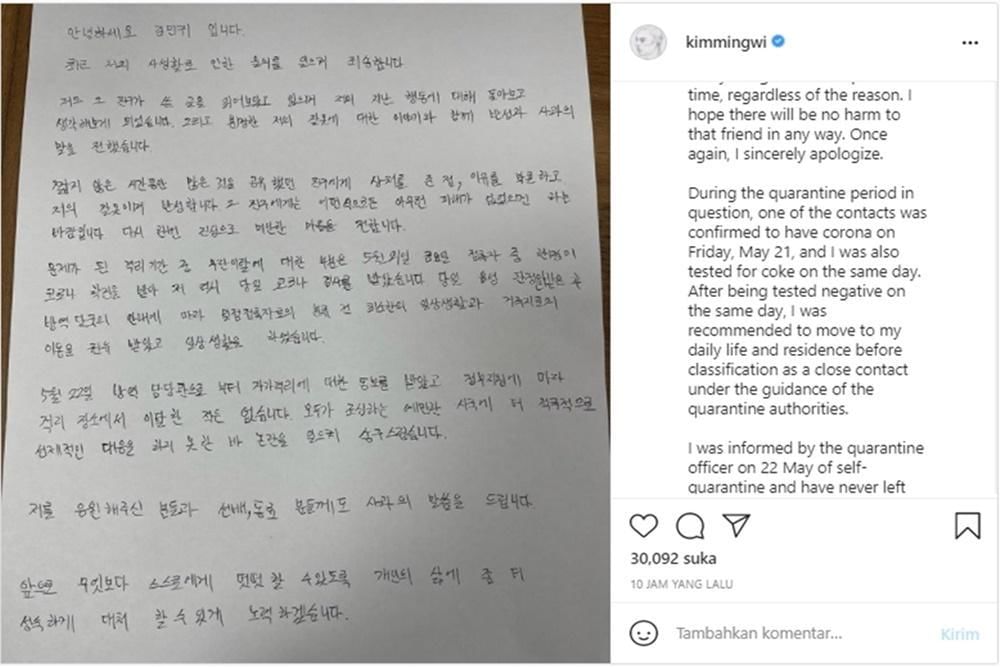 안녕하세요 김민귀 입니다.
최근 저의 사생활로 인한 물의를 일으켜 죄송합니다
저도 그 친구가 쓴 글을 읽어보았고 읽으며 저의 지난 행동에 대해 돌아보고
생각해보게 되었습니다. 그리고 분명한 저의 잘못에 대한 이야기와 함께 반성과 사과의
말을 전했습니다.
짧지 않은 시간동안 많은 것을 공유했던 친구에게 상처를 준 점, 이유를 불문하고
저의 잘못이며 반성합니다. 그 친구에게는 어떤식으로든 아무런 피해가 없었으면 하는
바람입니다. 다시 한번 진심으로 미안한 마음을 전합니다.
문제가 된 격리기간 중 무단이탈에 대한 부분은 5월 21일 금요일 접촉자 중 한명이
코로나 확진을 받아 저 역시 당일 코로나 검사를 받았습니다 당일 음성 판정을 받은 후
방역당국의 안내에 따라 밀접접촉자로의 분류 전 최소한의 일상생활과 거주지로의
이동을 권유 받았고 일상생활을 하였습니다.
5월 22일 방역 담당관으로 부터 자가격리에 대한 통보를 받았고 정부지침에 따라
격리 장소에서 이탈한 적은 없습니다. 모두가 조심하는 예민한 시국에 더 적극적으로
선제적인 대응을 하지 못한 바 논란을 일으켜 송구스럽습니다.
저를 응원해주신 분들과 선배, 동료 분들께도 사과의 말씀을 드립니다.
앞으로 무엇보다 스스로에게 떳떳할 수 있도록 개인의 삶에 좀 더
성숙하게 대처 할 수 있게 노력하겠습니다.
kimmingwi
time, regardless of the reason. I
hope there will be no harm to
that friend in any way. Once
again, I sincerely apologize.
During the quarantine period in
question, one of the contacts was
confirmed to have corona on
Friday, May 21, and I was also
tested for coke on the same day.
After being tested negative on
the same day, I was
recommended to move to my
daily life and residence before
classification as a close contact
under the guidance of the
quarantine authorities.
I was informed by the quarantine
officer on 22 May of self-
quarantine and have never left
30,092 suka
10 JAM YANG LALU
Tambahkan komentar...
Kirim